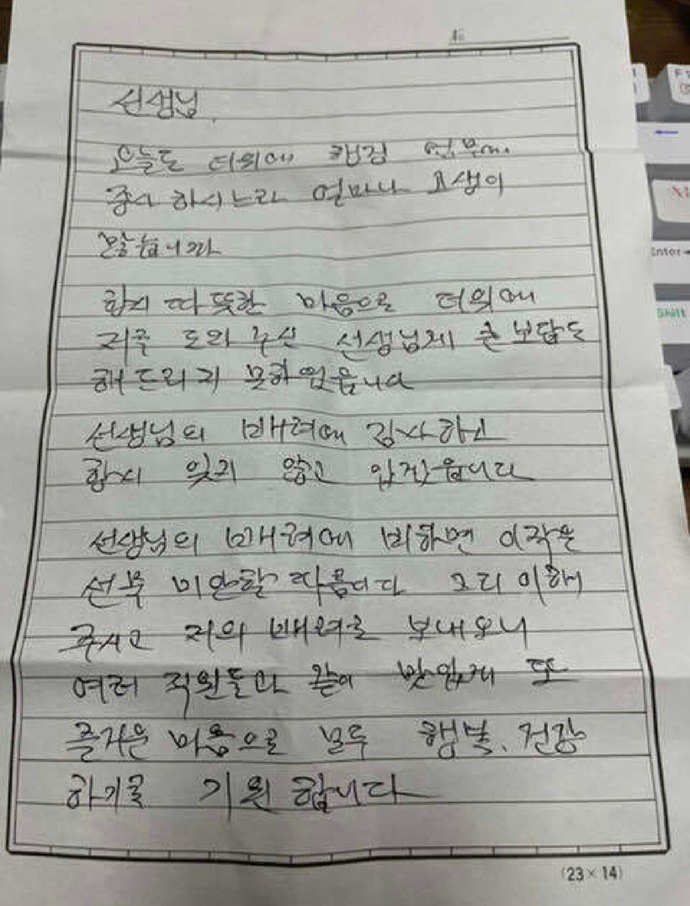 No
선생님.
오늘도 더위에 행정 업무에
종사 하시느라 얼마나 고생이
많습니까
항시 따뜻한 마음으로 더위에
저를 도와주신 선생님께 큰 보답도
해드리지 못하였읍니다
선생님의 배려에 감사하고
항시 잊지 않고 있겠읍니다
선생님의 배려에 비하면 이작은
선물 미안할 따름이다 그리 이해
주시고 저의 배려로 보내오니
여러 직원들과 같이 맛있게 또
즐거운 마음으로 모두 행복, 건강
하기를 기원합니다
(23 × 14)
Enter